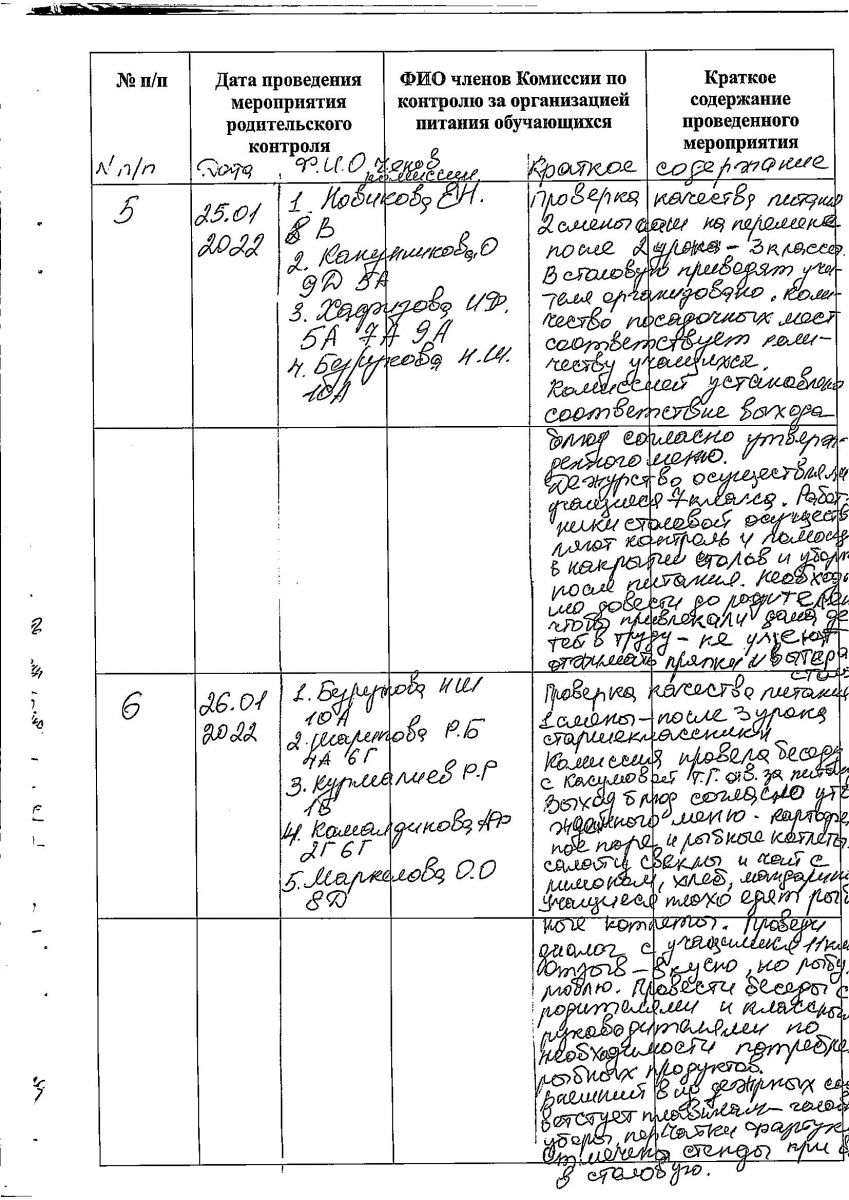 № п/п
Дата проведения
мероприятия
родительского
контроля
ФИО членов Комиссии по
контролю за организацией
питания обучающихся
Краткое
содержание
проведенного
мероприятия
N п/п
Дата
Ф.И.О членов
комиссии
Краткое содержание
5
25.01
2022
1. Новикова Е.Н.
8 В
2. Канунникова О
9Д 5А
3. Хафизова И.Ф.
5А 7А 9А
4. Бурукова Н.Ш.
10А
Проверка качества питания
2 смены на перемене
после 2 урока - 3 класса.
В столовую приводят учи-
теля организовано. Коли-
чество посадочных мест
соответствует коли-
честву учащихся.
Комиссией установлено
соответствие выхода
блюд согласно утверж-
денного меню.
Дежурство осуществляли
учащиеся 7 класса. Работ-
ники столовой осуществ
ляют контроль и помощь
в накрытии столов и уборке
после питания. Необходи
мо довести до родителей
чтобы привлекали дома де
тей в труду - не умеют
отжимать тряпки и вытирать
столы
6
26.01
2022
1. Бурукова НШ
10А
2. Шарипова Р.Б
4А 6Г
3. Курмалиев Р.Р
1В
4. Камалдинова АР
2Г 6Г
5. Маркелова О.О
8Д
Проверка качества питания
1 смены - после 3 урока
старшеклассники
Комиссия провела беседу
с Касумовой Т.Г. отв. за питан
Выход блюд согласно утв
жденного меню - картофе
ное пюре и рыбные котлеты.
салат свеклы и чай с
лимоном, хлеб, мандарины
учащиеся плохо едят рыб
ные котлеты. Провели
диалог с учащимися 11 кла
Отзыв - вкусно, но рыбу
люблю. Провести беседы с
родителями и классными
руководителями по
необходимости потребле
рыбных продуктов.
Внешний вид дежурных соо
ветствует правилам - голов
уборы перчатки фартук
Отмечены стенды при в
в столовую.